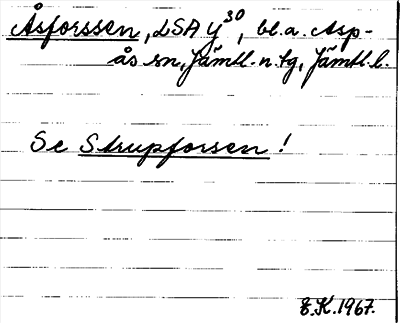 Åsforssen, LSA y³⁰, bl.a. Asp-
ås sn, Jämtl. n. tg, Jämtl. l.
Se Strupforsen!
E.K. 1967.